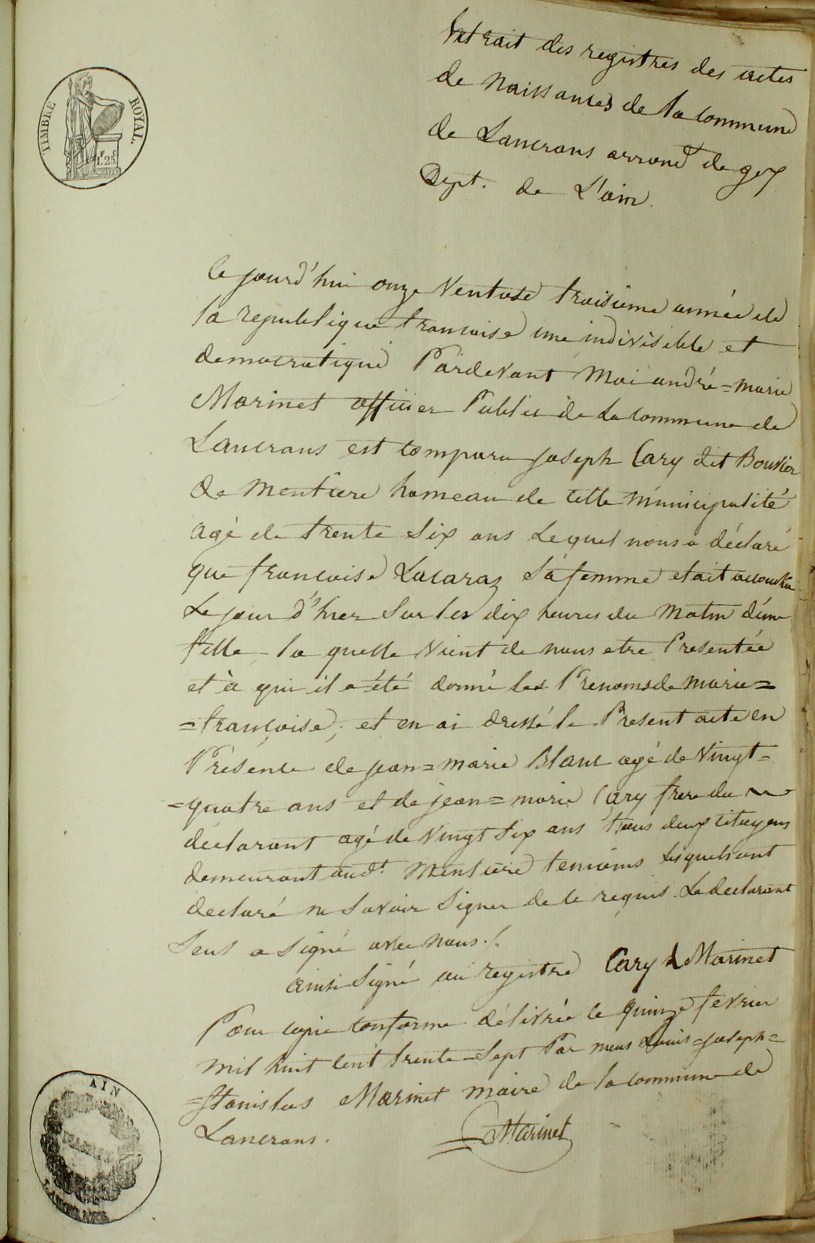 TIMBRE ROYAL.
1.25
Extrait des registres des actes
de naissances de la commune
de Lancrans arrond.t de gex
Dept. de L'ain.
Ce jourd'hui onze Ventose troisieme année de
la republique francoise une indivisible et
democratique Pardevant Moi andré=marie
Marinet officier Public de la commune de
Lancrans est comparu joseph Cary dit Bouvier
de mentiere hameau de cette municipalité
agé de trente six ans Lequel nous a déclaré
que francoise Lacaraz sa femme etait accouchée
Le jour d'hier sur les dix heures du matin d'une
fille la quelle Vient de nous etre Presentée
et à qui il a été donné les Prenoms de marie=
=françoise, et en ai dressé le Présent acte en
Présence de jean=marie Blanc agé de Vingt=
=quatre ans et de jean=marie Cary frere du
déclarant agé de Vingt six ans tous deux citoyens
demeurant aud.t mentiere temoins Lesquels ont
declaré ne Savoir Signer de ce requis. Le declarant
Seul a signé avec nous.
ainsi Signé au registre Cary & Marinet
Pour copie conforme délivrée le quinze fevrier
mil huit cent trente=sept Par nous Louis=joseph=
=stanislas Marinet maire de la commune de
Lancrans.
Marinet
AIN
LANCRANS